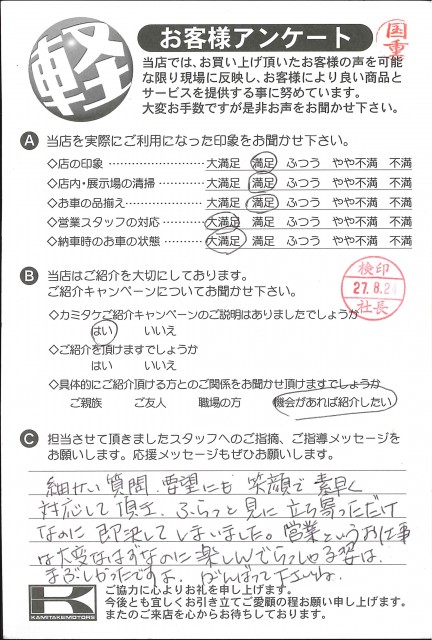 軽
お客様アンケート
国重
当店では、お買い上げ頂いたお客様の声を可能
な限り現場に反映し、お客様により良い商品と
サービスを提供する事に努めています。
大変お手数ですが是非お声をお聞かせ下さい。
A 当店を実際にご利用になった印象をお聞かせ下さい。
◇店の印象 ‥‥‥‥‥‥‥ 大満足 満足 ふつう やや不満 不満
◇店内・展示場の清掃 ‥‥‥‥ 大満足 満足 ふつう やや不満 不満
◇お車の品揃え ‥‥‥‥‥‥ 大満足 満足 ふつう やや不満 不満
◇営業スタッフの対応 ‥‥‥‥ 大満足 満足 ふつう やや不満 不満
◇納車時のお車の状態 ‥‥‥‥ 大満足 満足 ふつう やや不満 不満
B 当店はご紹介を大切にしてあります。
ご紹介キャンペーンについてお聞かせ下さい。
検印
27.8.24
社長
◇カミタケご紹介キャンペーンのご説明はありましたでしょうか
はい いいえ
◇ご紹介を頂けますでしょうか
はい いいえ
◇具体的にご紹介頂ける方とのご関係をお聞かせ頂けますでしょうか
ご親族 ご友人 職場の方 機会があれば紹介したい
C 担当させて頂きましたスタッフへのご指摘、ご指導メッセージを
お願いします。応援メッセージもぜひお願いします。
細かい質問、要望にも 笑顔で 素早く
対応して頂き、ふらっと見に立ち寄っただけ
なのに 即決してしまいました。営業というお仕事
は大変なはずなのに 楽しんでらっしゃる姿は、
まぶしかったですよ。がんばって下さいね。
K
KAMITAKEMOTORS
ご協力に心よりお礼を申し上げます。
今後とも宜しくお引き立てご愛顧の程お願い申し上げます。
またのご来店を心からお待ちしております。